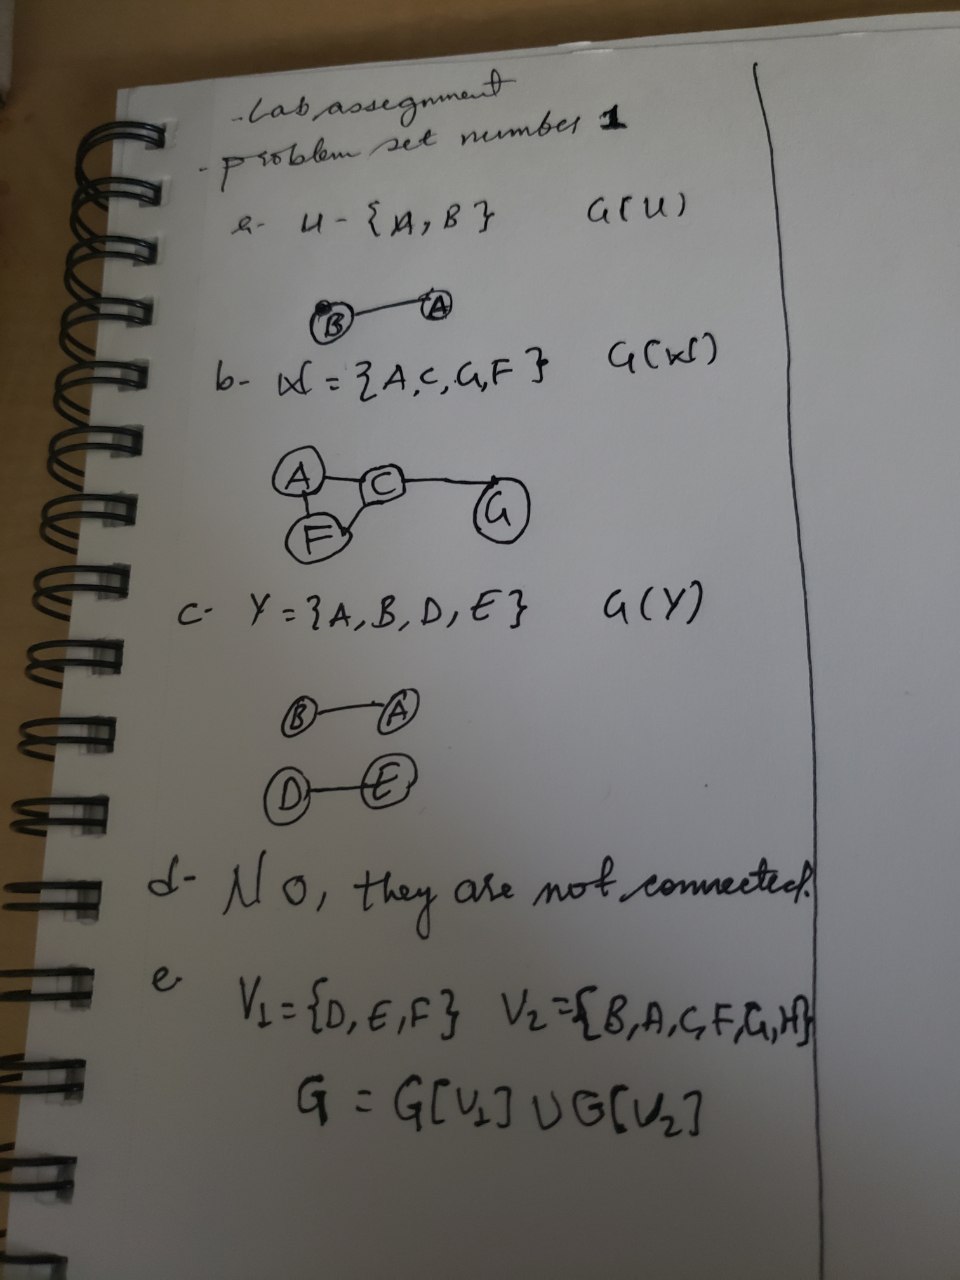 - Lab assegnment
- problem set number 1
a- U - {A, B} G(U)
B A
b- W = {A, C, G, F} G(W)
A C G
F
c- Y = {A, B, D, E} G(Y)
B A
D E
d- No, they are not connected.
e- V1 = {D, E, F} V2 = {B, A, C, F, G, H}
G = G[V1] ∪ G[V2]